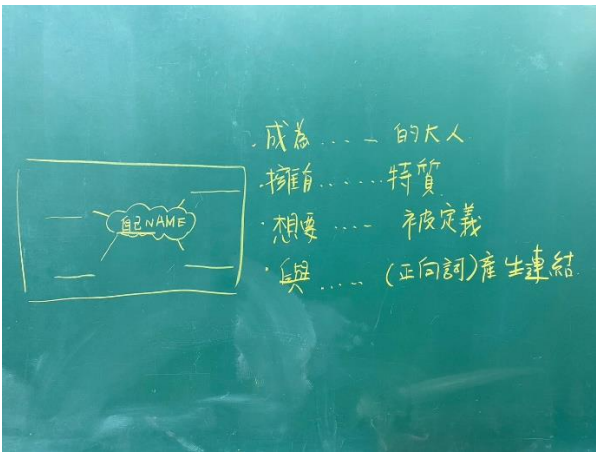 自己NAME
·成為..... 的大人
·擁有......特質
·想要..... 被定義
·與..... (正向詞)產生連結